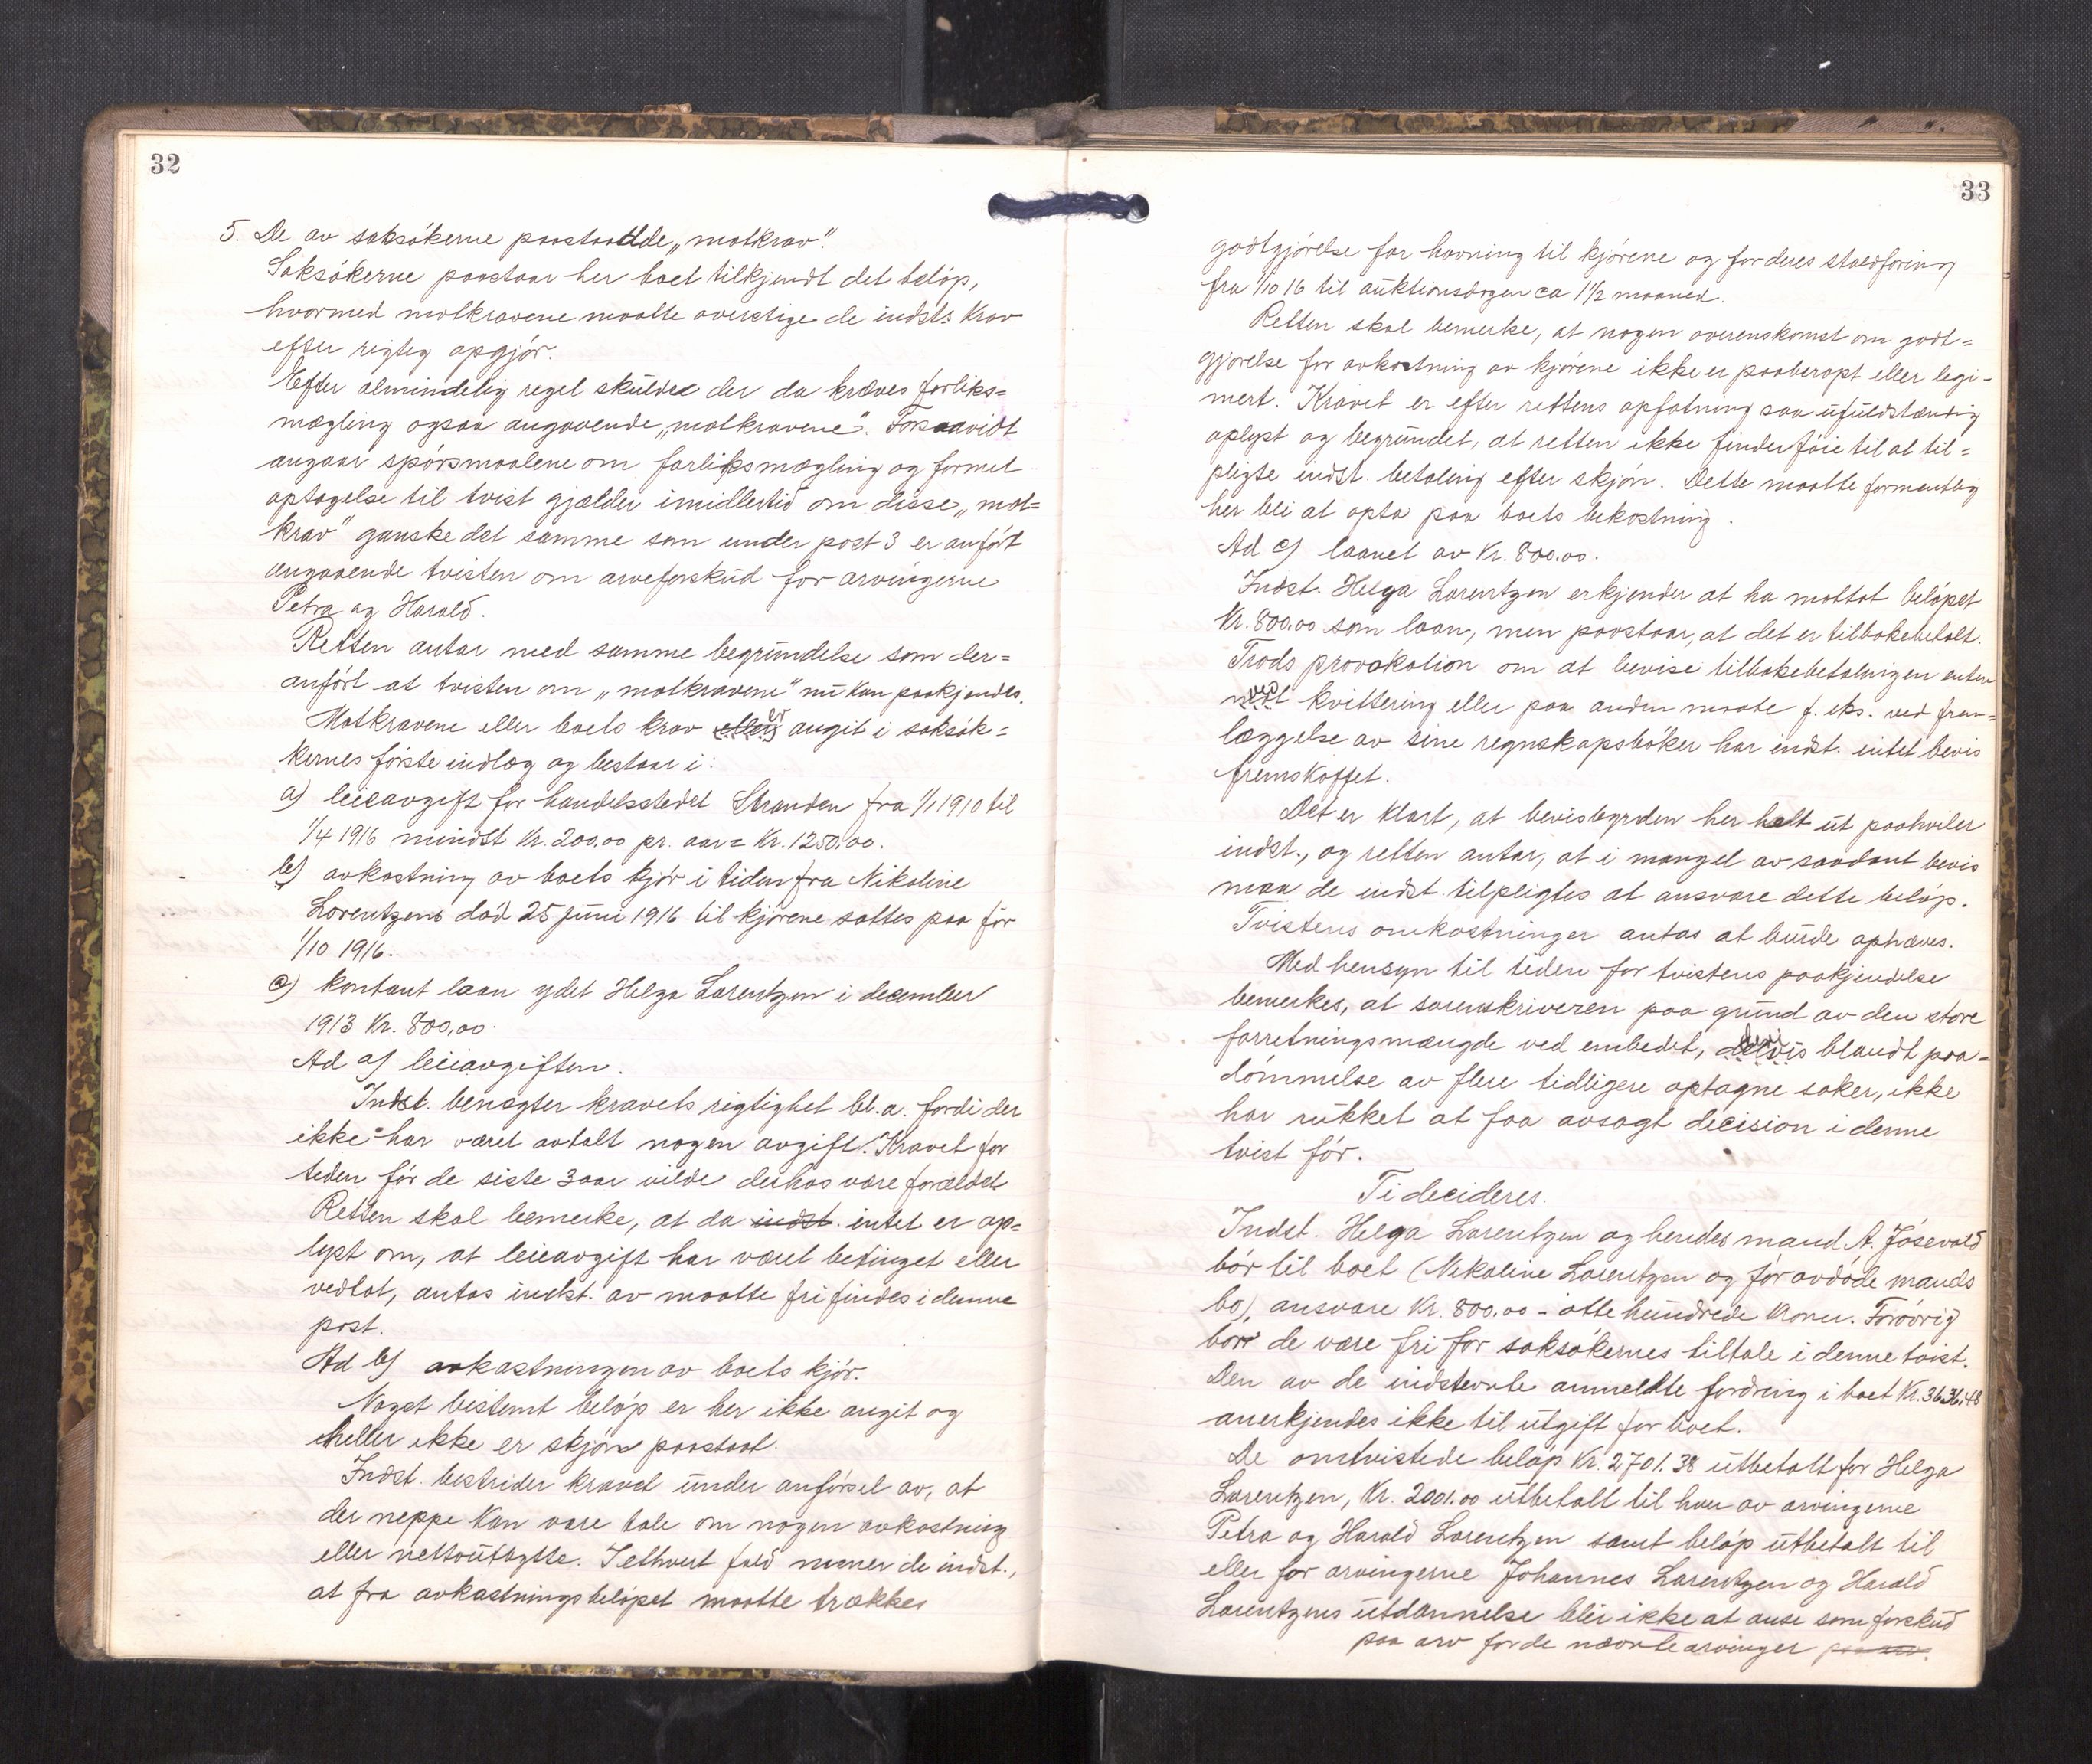 32
5. De av saksökerne paastaatde „motkrav".
Saksökerne paastaar her boet tilkjendt det belöp,
hvormed motkravene maatte overstige de indsts krav
efter rigtig opgjör.
Efter almindelig regel skulde der da kræves forliks=
mægling ogsaa angaaende „motkravene". Forsaavidt
angaar spörsmaalene om forliksmægling og formel
optagelse til tvist gjælder imidlertid om disse „mot=
krav" ganske det samme som under post 3 er anfört
angaaende tvisten om arveforskud for arvingerne
Petra og Harald.
Retten antar med samme begrundelse som der=
anfört at tvisten om „motkravene" nu kan paakjendes.
Motkravene eller boets krav er angit i saksök=
kernes förste indlæg og bestaar i:
a) leieavgift for handelsstedet Stranden fra 1/1 1910 til
1/4 1916 mindst Kr. 200.00 pr. aar = Kr. 1250.00.
b) avkastning av boets kjör i tiden fra Nikoline
Lorentzens död 25 juni 1916 til kjörene sattes paa för
1/10 1916.
c) kontant laan ydet Helga Lorentzen i december
1913 Kr. 800,00.
Ad a) leieavgiften.
Indst. benegter kravets rigtighet bl.a. fordi der
ikke har været avtalt nogen avgift. Kravet for
tiden för de siste 3 aar vilde derhos være forældet
Retten skal bemerke, at da indst. intet er op=
lyst om, at leieavgift har været betinget eller
vedtat, antas indst. av maatte frifindes i denne
post.
Ad b) avkastningen av boets kjör.
Noget bestemt belöp er her ikke angit og
heller ikke er skjön paastaat.
Indst. bestrider kravet under anförsel av, at
der neppe kan være tale om nogen avkastning
eller nettoutbytte. I ethvert fald mener de indst.,
at fra avkastningsbelöpet maatte trækkes
33
godtgjörelse for havning til kjörene og for deres staldforing
fra 1/10 16 til auktionsdagen ca 1 1/2 maaned.
Retten skal bemerke, at nogen overenskomst om godt=
gjörelse for avkastning av kjörene ikke er paaberopt eller legi-
mert. Kravet er efter rettens opfatning saa ufuldstændig
oplyst og begrundet, at retten ikke finder föie til at til=
pligte indst. betaling efter skjön. Dette maatte formentlig
her bli at opta paa boets bekostning.
Ad c) laanet av Kr. 800.00.
Indst. Helga Lorentzen erkjender at ha mottat belöpet
Kr. 800.00 som laan, men paastaar, at det er tilbakebetalt.
Trods provokation om at bevise tilbakebetalingen enten
ved kvittering eller paa anden maate f. eks. ved frem=
læggelse av sine regnskapsböker har indst. intet bevis
fremskaffet.
Det er klart, at bevisbyrden her helt ut paahviler
indst., og retten antar, at i mangel av saadant bevis
maa de indst. tilpligtes at ansvare dette belöp.
Tvistens omkostninger antas at burde ophæves.
Med hensyn til tiden for tvistens paakjendelse
bemerkes, at sorenskriveren paa grund av den store
forretningsmængde ved embedet, blandt paa=
dömmelse av flere tidligere optagne saker, ikke
har rukket at faa avsagt decision i denne
tvist för.
Ti decideres.
Indst. Helga Lorentzen og hendes mand A. Jösevold
bör til boet (Nikoline Lorentzen og för avdöde mands
bo), ansvare Kr. 800,00 - otte hundrede kroner. Forövrig
bör de være fri for saksökernes tiltale i denne tvist.
Den av de indstevnte anmeldte fordring i boet Kr. 3636.48
anerkjendes ikke til utgift for boet.
De omtvistede belöp Kr. 2701.38 utbetalt for Helga
Lorentzen, Kr. 2001.00 utbetalt til hver av arvingerne
Petra og Harald Lorentzen samt belöp utbetalt til
eller for arvingerne Johannes Lorentzen og Harald
Lorentzens utdannelse blir ikke at anse som forskud
paa arv for de nævnte arvinger paa arv.